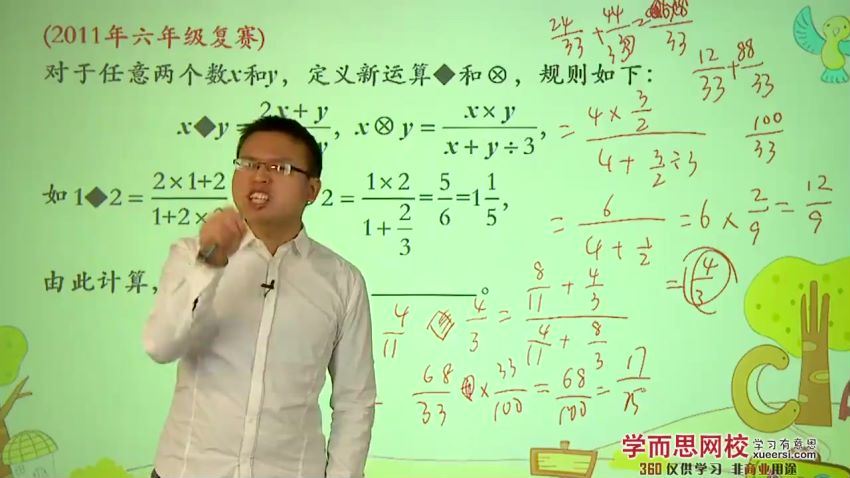 (2011年六年级复赛)
对于任意两个数x和y，定义新运算◆和⊗，规则如下：
x◆y = 2x+y/ y, x⊗y = x×y/x+y÷3,
如1◆2 = 2×1+2/1+2× 2 = 1×2/1+2/3 = 5/6 = 1 1/5,
由此计算, 。
24/33 + 44/33 = 68/33
12/33 + 88/33
100/33
= 4×3/2 / 4+3/2÷3
= 6 / 4+1/2 = 6×2/9 = 12/9
= 1 4/3
4/11 ◆ 4/3 = 8/11 + 4/3 / 4/11 + 8/3
68/33 × 33/100 = 68/100 = 17/25
学而思网校 学习有意思
xueersi.com
360 仅供学习 非商业用途